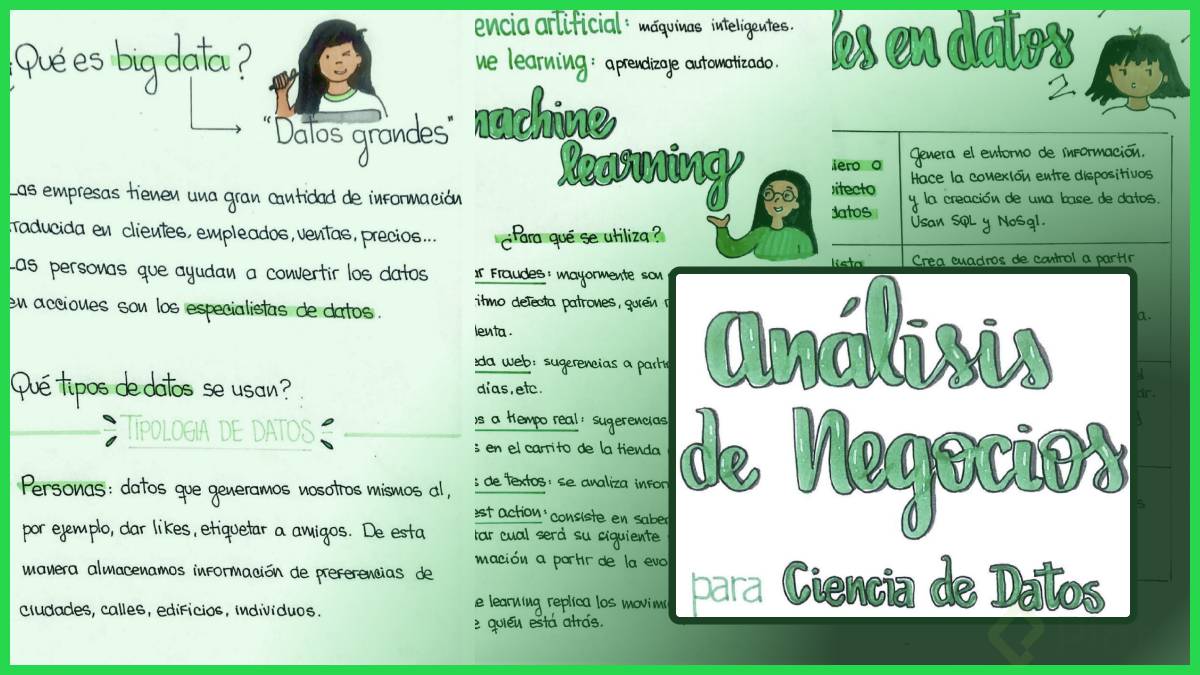 ¿Qué es big data?
"Datos grandes"
Las empresas tienen una gran cantidad de información
traducida en clientes, empleados, ventas, precios...
Las personas que ayudan a convertir los datos
en acciones son los especialistas de datos.
Qué tipos de datos se usan?
TIPOLOGIA DE DATOS
Personas: datos que generamos nosotros mismos al,
por ejemplo, dar likes, etiquetar a amigos. De esta
manera almacenamos información de preferencias de
ciudades, calles, edificios, individuos.
encia artificial: máquinas inteligentes.
ne learning: aprendizaje automatizado.
machine
learning
¿Para qué se utiliza?
ar Fraudes: mayormente son
itmo detecta patrones, quién
lenta.
eda web: sugerencias a parti
días, etc.
os a tiempo real: sugerencias
s en el carrito de la tienda
s de textos: se analiza infor
est action: consiste en saber
tar cual será su siguiente
mación a partir de la evo
e learning replica los movimi
e quién está atrás.
les en datos
2
iero o
itecto
datos
Genera el entorno de información.
Hace la conexión entre dispositivos
y la creación de una base de datos.
Usan SQL y NoSql.
lista
Crea cuadros de control a partir
Análisis
de Negocios
para Ciencia de Datos